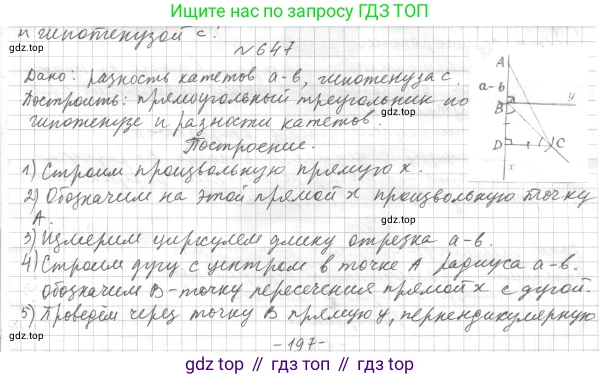 Ищите нас по запросу ГДЗ ТОП
gdz top
и гипотенузой с!
№647
Дано: разность катетов a-в, гипотенуза с.
Построить: прямоугольный треугольник по
гипотенузе и разности катетов.
Построение.
1) Строим произвольную прямую x.
2) Обозначим на этой прямой x произвольную точку
A.
3) Измерим циркулем длину отрезка a-в.
4) Строим дугу с центром в точке A радиуса a-в.
обозначим B-точку пересечения прямой x с дугой.
5) Проведём через точку B прямую y, перпендикулярную
-197-
A
a-в
B
y
D
C
x
gdz top // gdz top // gdz top // gdz top